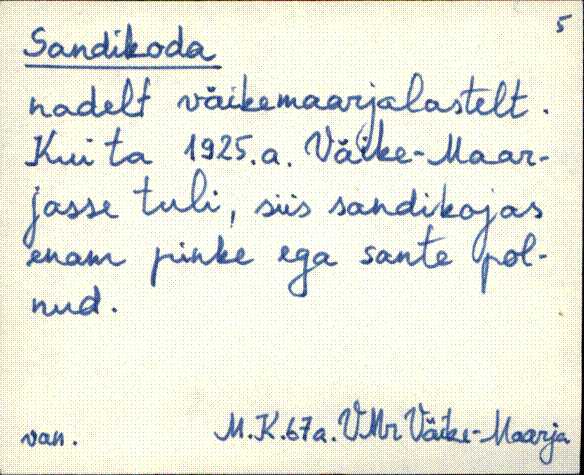 5
Sandikoda
nadelt väikemaarjalastelt.
Kui ta 1925.a. Väike-Maar-
jasse tuli, siis sandikojas
enam pinke ega sante pol-
nud.
van. M.K. 67a. VMr Väike-Maarja